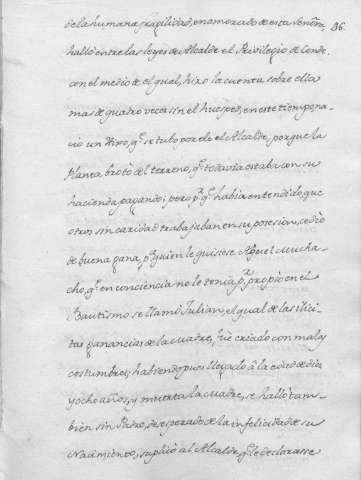 de la humana fragilidad, enamorado de esta Venus, 36.
halló entre las leyes de Alcalde el Privilegio de Conde
con el medio de el qual, hizo la cuenta sobre ella
mas de quatro veces sin el huesped, en este tiempo na-
cio un Niño, q.e se tubo por de el Alcalde, porque la
Planta brotó del terreno, q.e todavia estaba con su
hacienda pagando; pero p.r q.e habia entendido, que
otros sin caridad trabajaban en su posesion, cedio
de buena gana, p.a quien le quisiese Aquel Mucha-
cho, q.e en conciencia no le tenia p.r propio en el
Bautismo se llamó Julian, el qual de las ilici-
tas ganancias de la Madre, fue criado con malas
costumbres; habiendo pues llegado à la edad de diez
y ocho años, y muerta la Madre, se halló tam-
bien sin Padre, desesperado de la infelicidad de su
Nacimiento, suplicó al Alcalde, q.e le declarasse